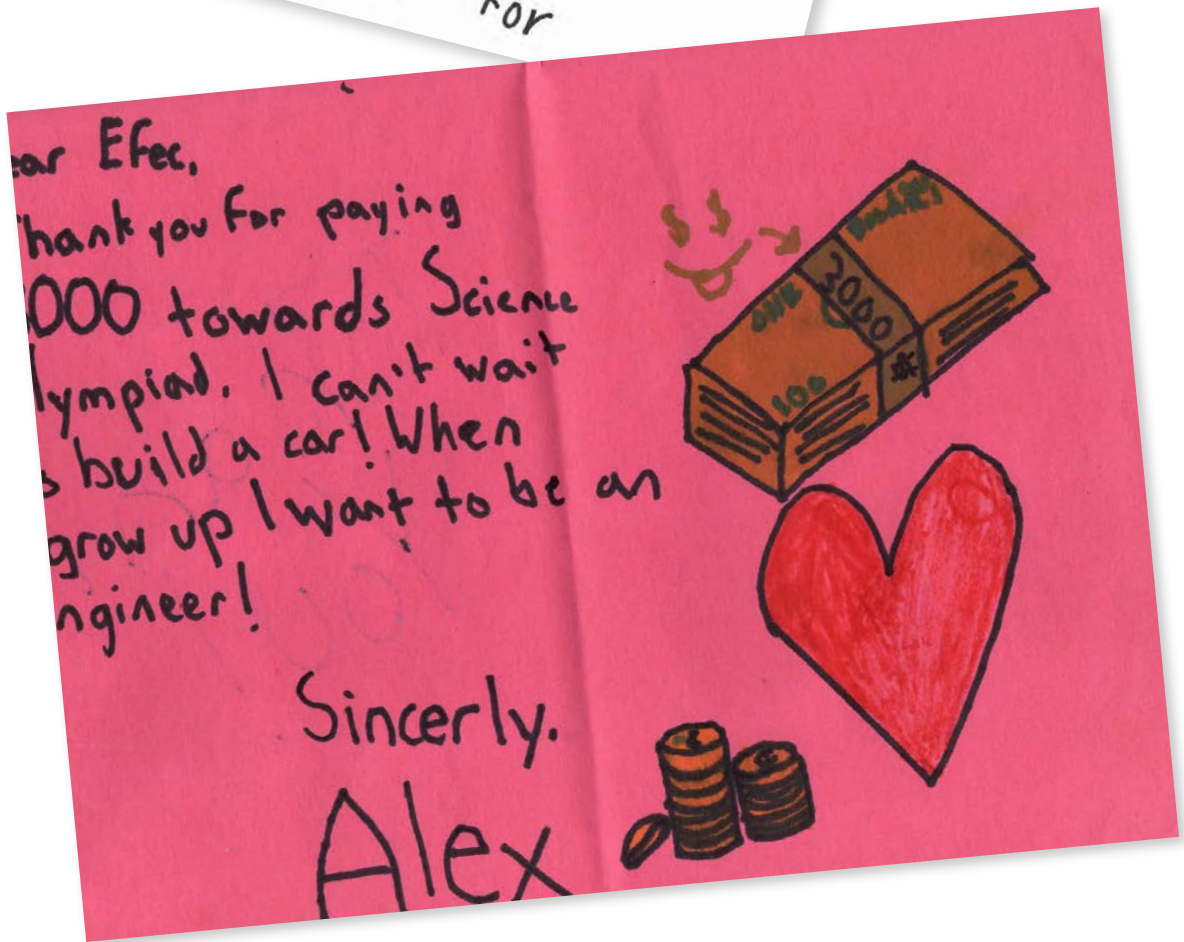 for
ear Efec,
hank you for paying
000 towards Science
lympiad. I can't wait
build a car! When
grow up I want to be an
ngineer!
Sincerly.
Alex
3000
ONE
100